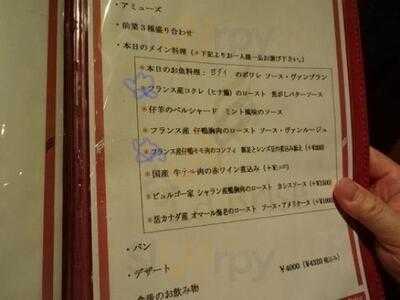 ・アミューズ
・前菜３種盛り合わせ
・本日のメイン料理（＊下記よりお一人様一品お選び下さい。）
＊本日のお魚料理： のポワレ ソース・ヴァンブラン
＊フランス産コクレ（ヒナ鶏）のロースト 焦がしバターソース
＊仔羊のペルシャード ミント風味のソース
＊フランス産 仔鴨胸肉のロースト ソース・ヴァンルージュ
＊フランス産仔鴨モモ肉のコンフィ
＊国産 牛テール肉の赤ワイン煮込み
＊ビュルゴー家 シャラン産鴨胸肉のロースト カシスソース（＋¥1500）
＊活カナダ産 オマール海老のロースト ソース・アメリケーヌ（＋¥1000）
・パン
・デザート
・食後のお飲み物
￥4000（￥4320税込み）